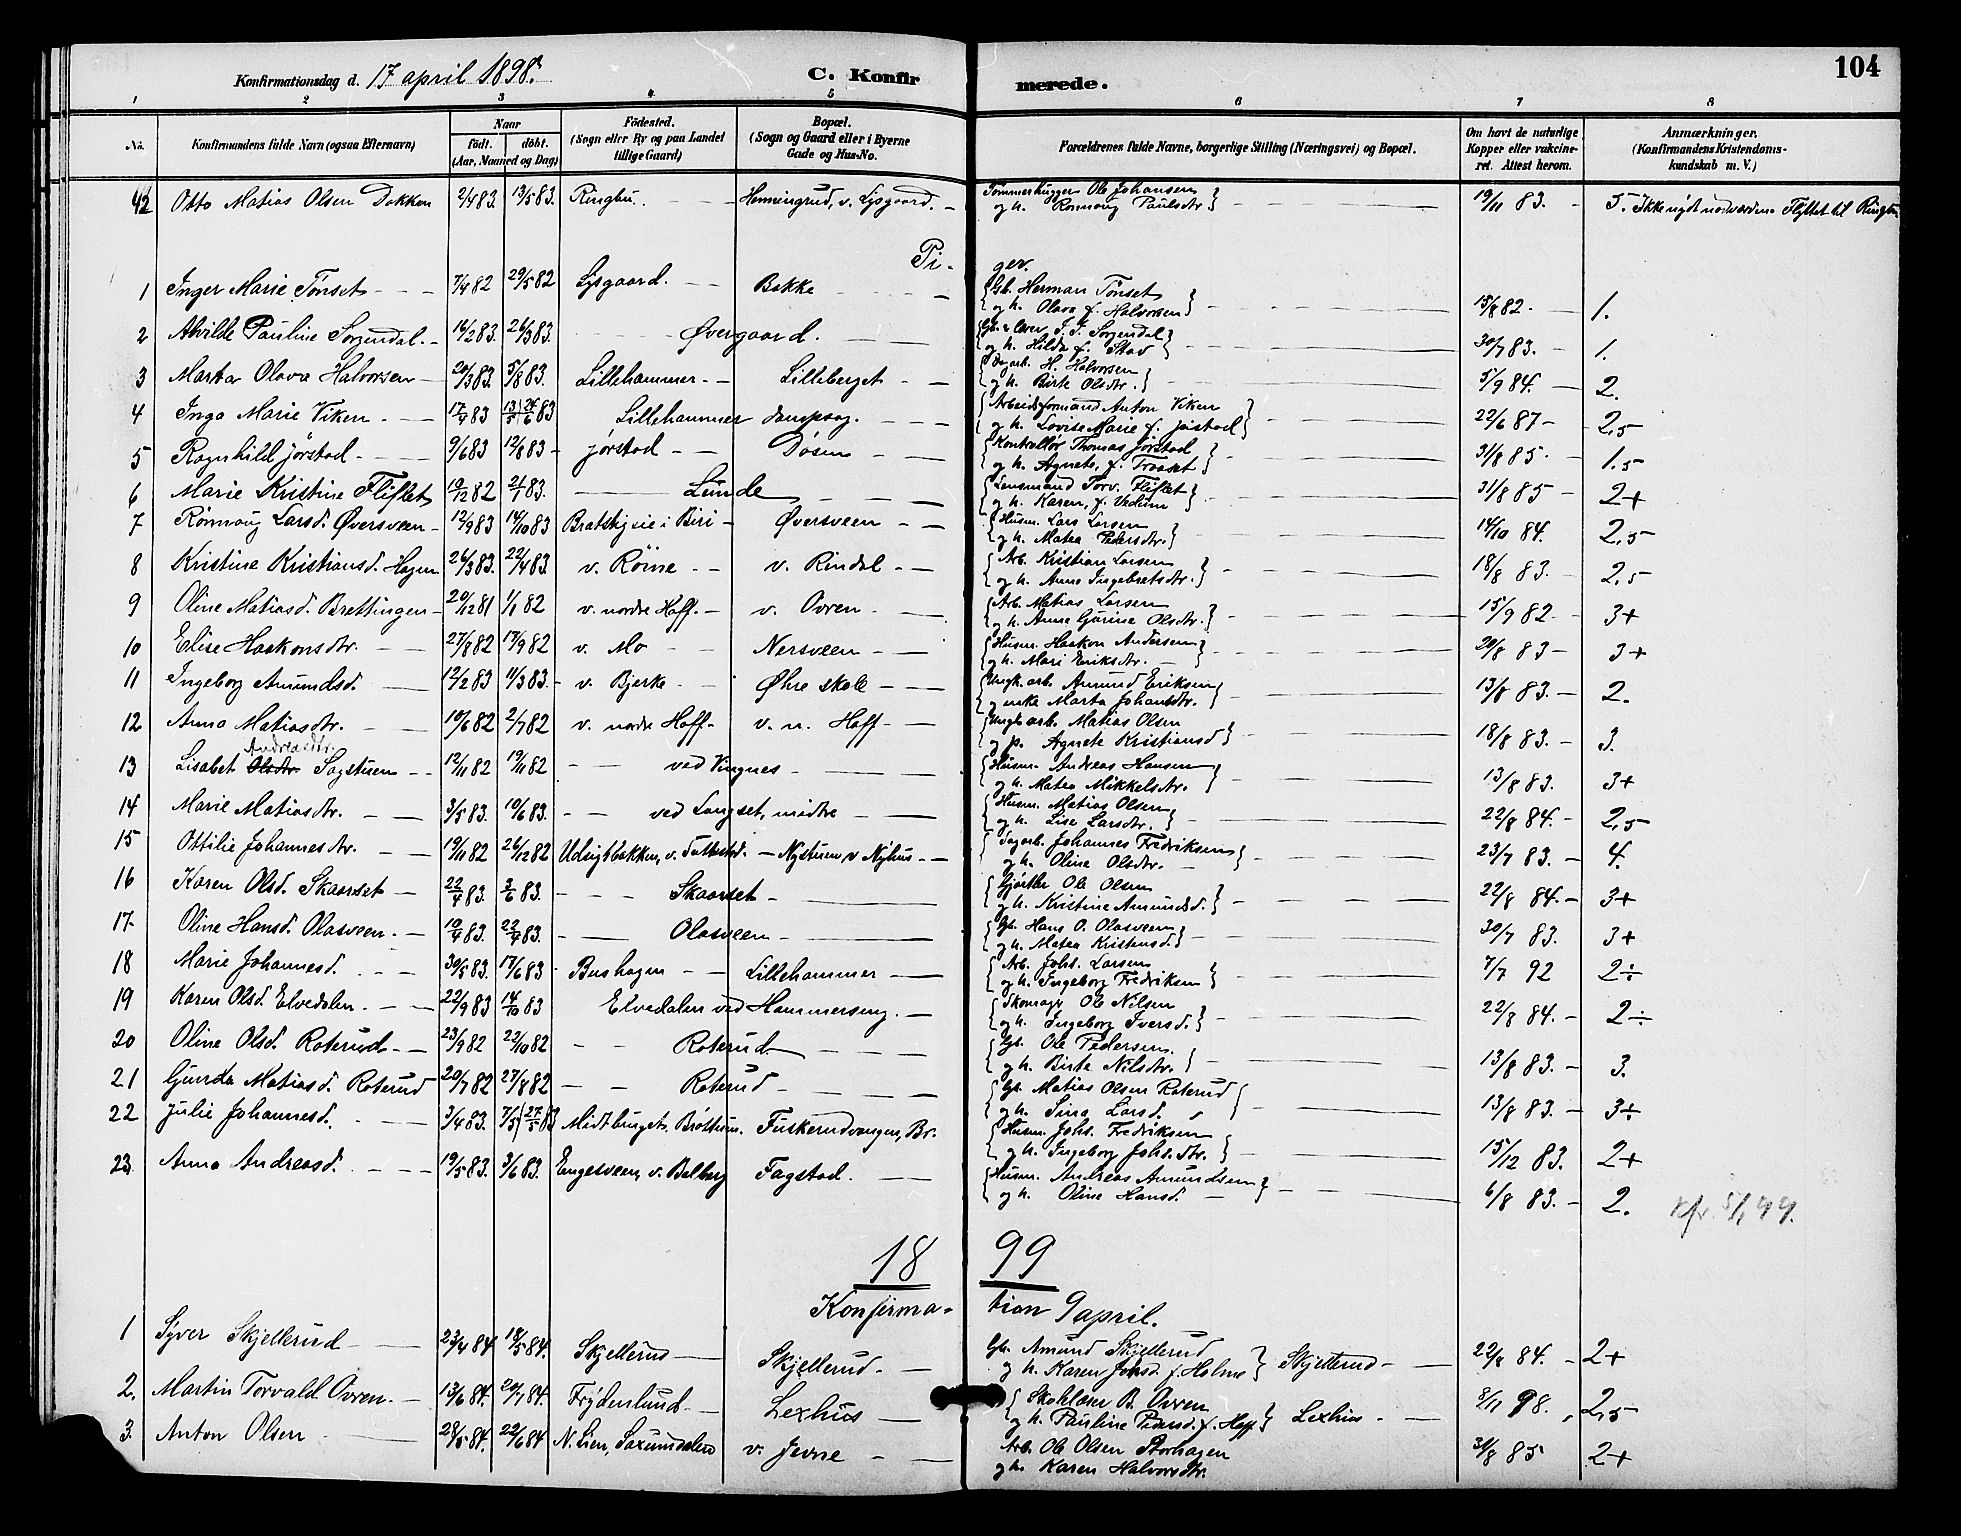 104
Konfirmationsdag d. 17 april 1898. C. Konfirmerede.
1 2 3 4 5 6 7 8
No. Konfirmandens fulde Navn (ogsaa Efternavn) Naar födt. döbt. (Aar, Maaned og Dag) Födested. (Sogn eller By og paa Landet tillige Gaard) Bopæl. (Sogn og Gaard eller i Byerne Gade og Hus-No. Forældrenes fulde Navne, borgerlige Stilling (Næringsvei) og Bopæl. Om havt de naturlige Kopper eller vaccineret. Attest herom. Anmærkninger. (Konfirmandens Kristendomskundskab m. V.)
42 Otto Matias Olsen Dokken 2/4 83. 13/5 83. Ringbu Henningrud, v. Lysgaard. Tømmerhugger Ole Johansen og h. Ronnaug Paulsdtr 19/11 83. Flyttet til
Piger.
1 Inger Marie Tönset 7/4 82 29/5 82 Lysgaard. Bakke Gb. Herman Tönset og h. Olava f. Halvorsen 15/8 82 1.
2 Alvilde Pauline Sorgendal. 14/2 83. 26/3 83. Øvergaard. Sorgendal og h. Hilda f. Skav 30/7 83. 1.
3 Marta Olava Halvorsen 20/3 83. 5/8 83. Lillehammer Lilleberget Dagarb. H. Halvorsen og h. Birte Olsdtr. 5/9 84. 2.
4 Inga Marie Viken 17/4 83 13/5 | 24/6 83 Lillehammer dampsag. Arbeidsformand Anton Viken og h. Lovise Marie f. 22/6 87 2,5
5 Ragnhild Jørstad 9/6 83 12/8 83 Jørstad Døsen Kontrollør Thomas Jørstad og h. Agnete, f. Traaset 31/8 85 1.5
6 Marie Kristine Fliflet 19/12 82 21/1 83. Lunde Lensmand Torv. Fliflet og h. Karen, f. Vedum 31/8 85 2+
7 Rönnaug Larsd. Øversveen 12/9 83 14/10 83 i Biri Øversveen Husm. Lars Larsen og h. Matea Pedersdtr. 14/10 84. 2,5
8 Kristine Kristiansd. Hagen 26/3 83. 22/4 83. v. Röine v. Rindal Arb. Kristian Larsen og h. Anne Ingebretsdtr. 18/8 83. 2,5
9 Oline Matiasd. Brettingen 20/12 81 1/1 82 v. nordre Hoff. v. Ovren Arb. Matias Larsen og h. Anne Gurine Olsdtr. 15/9 82 3+
10 Elise Haakonsdtr. 27/8 82 17/9 82 v. Mo Nersveen Husm. Haakon Andersen og h. Mari Eriksdtr. 20/8 83 3+
11 Ingeborg Amundsd. 12/2 83 11/3 83. v. Bjerke Øhre skole Ungk. arb. Amund Eriksen og enke Marta Johansdtr. 13/8 83. 2.
12 Anna Matiasdtr. 10/6 82 2/7 82 v. nordre Hoff v. n. Hoff Ungk. arb. Matias Olsen og p. Agnete Kristiansd 18/8 83. 3.
13 Lisabet Olsdtr. Andreasdtr. Sagstuen 12/11 82 19/11 82 ved Vingnes Husm. Andreas Hansen og h. Matea Mikkelsdtr. 13/8 83. 3+
14 Marie Matiasdtr. 3/5 83. 10/6 83. ved Langset, midtre Husm. Matias Olsen og h. Lise Larsdtr. 22/8 84. 2,5
15 Ottilie Johannesdtr. 19/11 82 26/12 82 Udsigtbakken, v. Nystuen, v. Nyhus Dagarb. Johannes Fredriksen og h. Oline Olsdtr. 23/7 83. 4.
16 Karen Olsd. Skaarset 22/4 83. 3/6 83. Skaarset Gjørtler Ole Olsen og h. Kristine Amundsd. 22/8 84. 3+
17. Oline Hansd. Olasveen. 10/4 83. 22/4 83. Olasveen Gb. Hans O. Olasveen og h. Matea Kristensd. 30/7 83. 3+
18 Marie Johannesd. 30/5 83. 17/6 83 Bushagen Lillehammer Arb. Johs. Larsen og h. Ingeborg Fredriksen 7/7 92 2÷
19 Karen Olsd. Elvedalen 22/9 83 14/10 83 Elvedalen ved Hammerseng. Skomager Ole Nilsen og h. Ingeborg Iversd. 22/8 84. 2÷
20 Oline Olsd. Roterud 23/9 82 22/10 82 Roterud Gb. Ole Pedersen. og h. Birte Nilsdtr. 13/8 83. 3.
21 Gunda Matiasd. Roterud 20/7 82 27/8 82 Roterud Gb. Matias Olsen Roterud og h. Sina Larsd. 13/8 83. 3÷
22 Julie Johannesd. 3/4 83. 7/5 | 27/5 83 Midtburget. Brøttum. Fuskerudvangen, Br. Husm. Johs. Fredriksen og h. Ingeborg Johs.dtr. 15/12 83. 2+
23 Anna Andreasd. 19/5 83. 3/6 83. Engesveen, v. Balberg Fagstad. Husm. Andreas Amundsen og h. Oline Hansd. 6/8 83. 2.
1899
Konfirmation 9 april.
1 Syver Skjellerud 23/4 84 18/5 84. Skjellerud Skjellerud. Gb. Amund Skjellerud og h. Karen Johsd. f. Holme Skjellerud 22/8 84. 2+
2. Martin Torvald Ovren. 13/6 84. 20/7 84. Frydenlund Lexhus B. Ovren og h. Pauline f. Hoff Lexhus 8/11 98. 2,5
3. Anton Olsen 28/5 84. 22/6 84 N. Lien, Saxumdalen v. Jevne Arb. Ole Olsen Storhagen og h. Karen Halvorsdtr. 31/8 85 2+